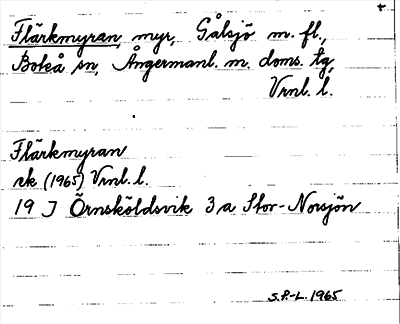 Flärkmyran, myr, Gålsjö m. fl.,
Boteå sn, Ångermanl. m. doms. tg,
Vrnl. l.
Flärkmyran
rk (1965) Vrnl. l.
19 J Örnsköldsvik 3 a Stor-Norsjön
S.P.-L. 1965